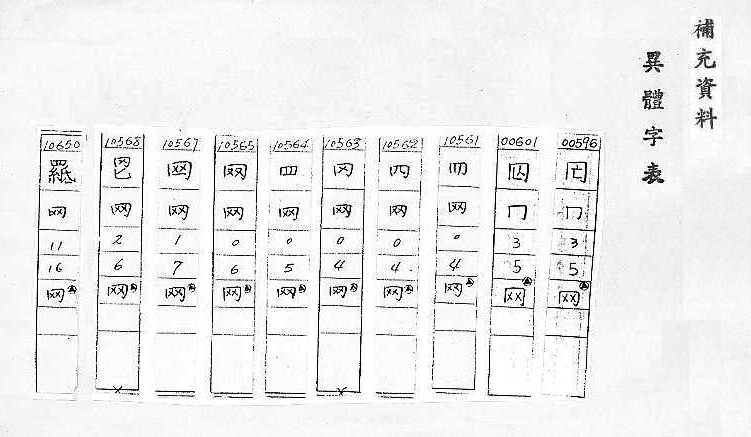 補充資料
異體字表
10650 10568 10567 10565 10564 10563 10562 10561 00601 00596
网 罒
网 网 网 网 网 网 网 网 冂 冂
11 2 1 0 0 0 0 0 3 3
16 6 7 6 5 4 4 4 5 5
网 网 网 网 网 网 网 网 网 网